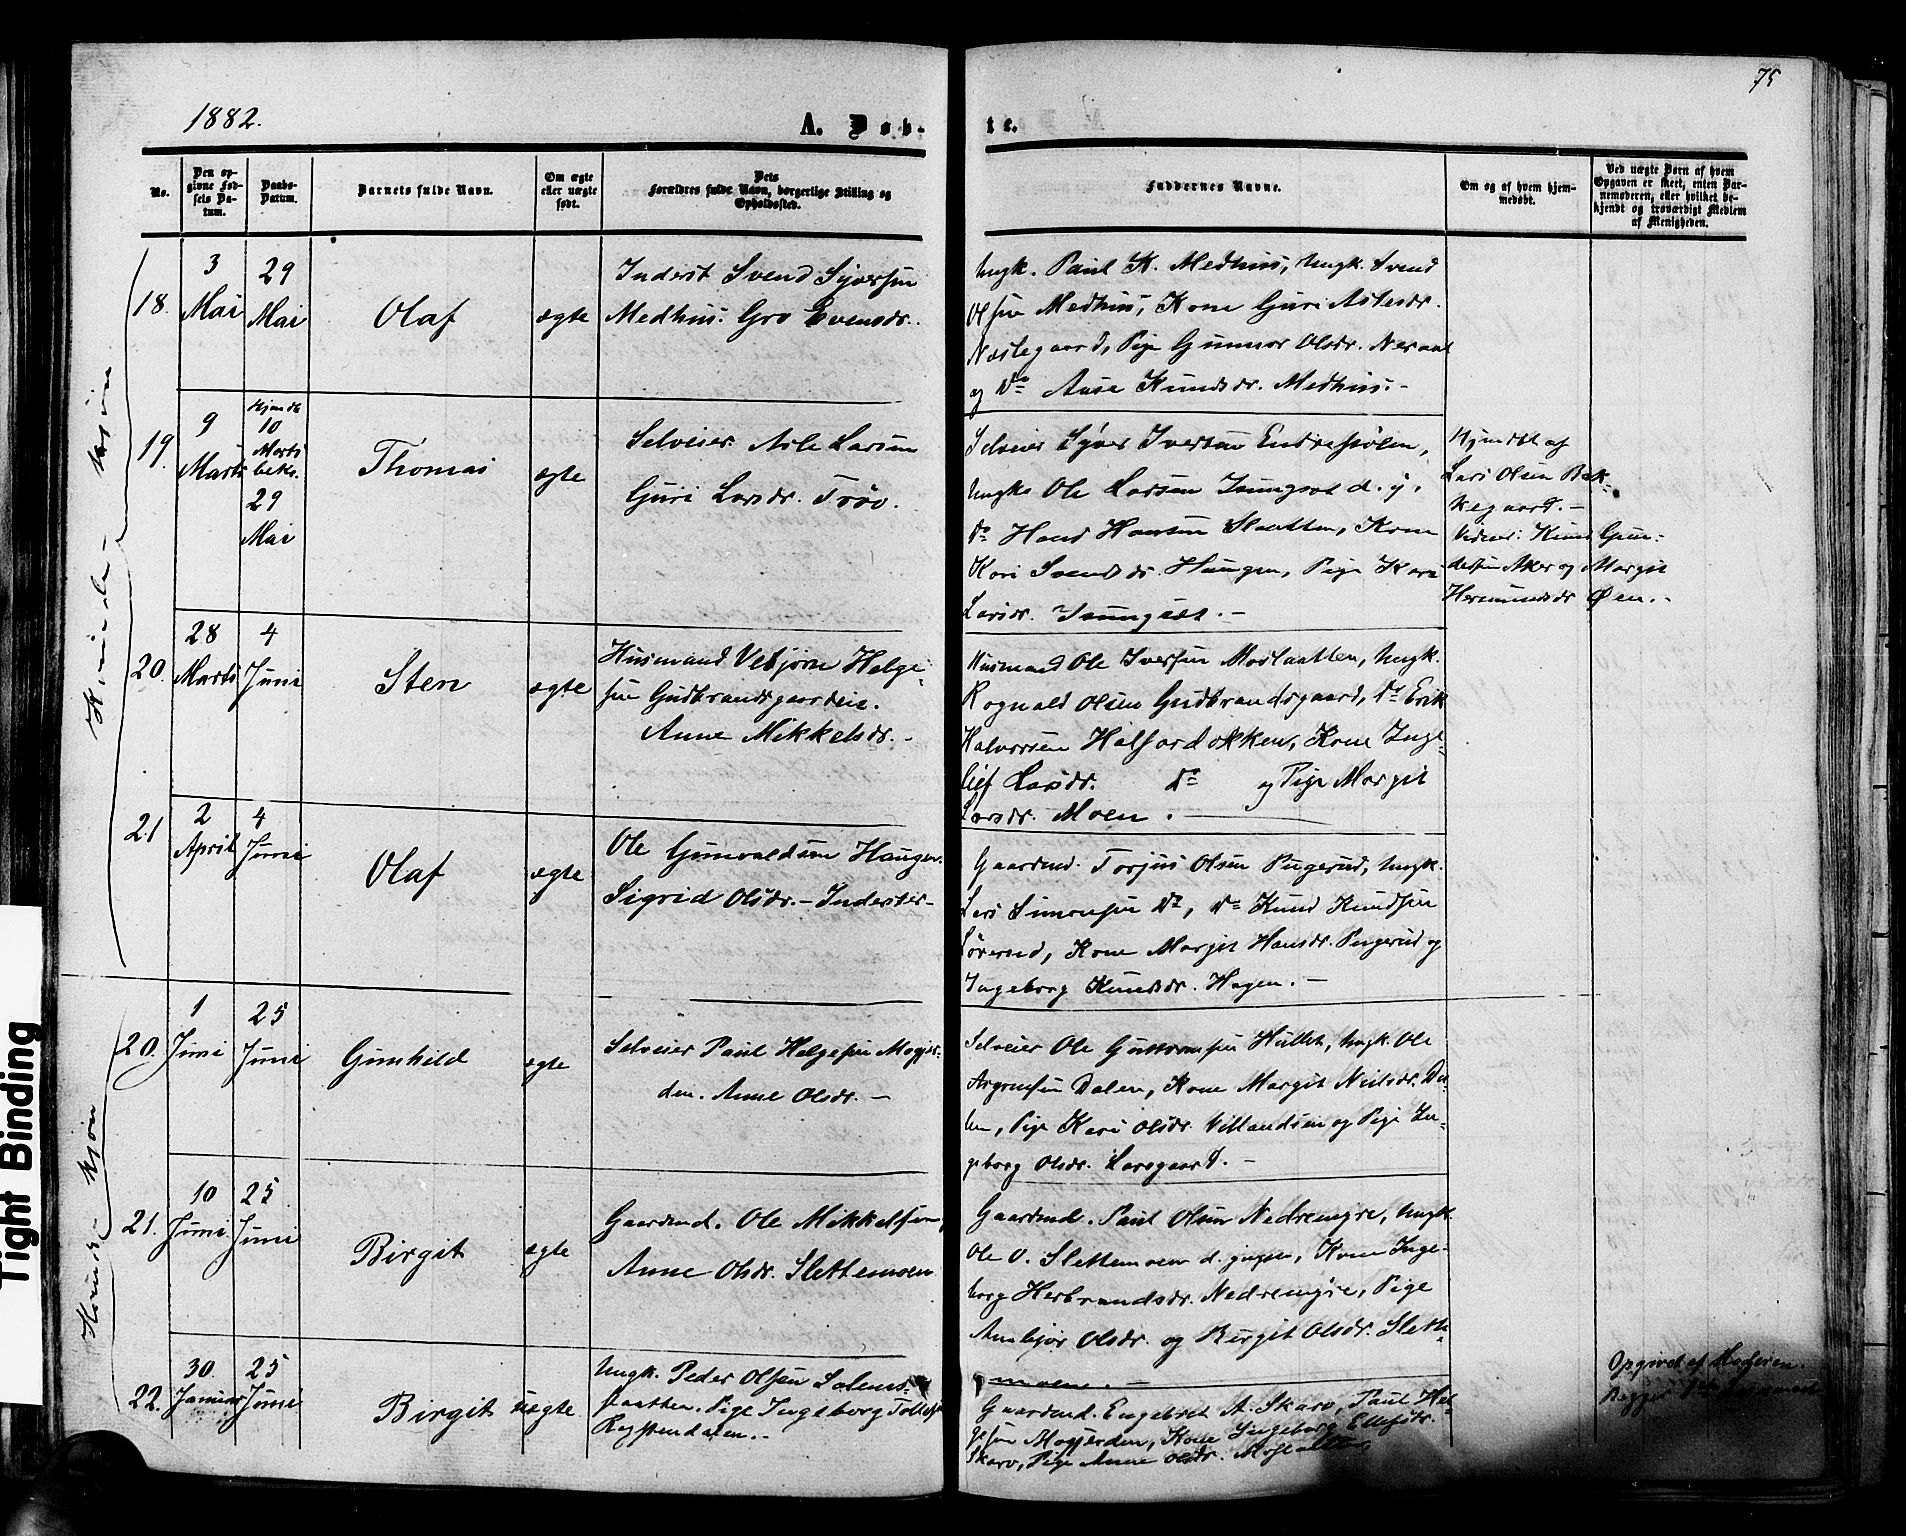 75
1882.
A. Døb-
te.
No.
Den op-
givne Fød-
sels Da-
tum.
Daabs-
Datum.
Barnets fulde Navn.
Om ægte
eller uægte
født.
Dets
Forældres fulde Navn, borgerlige Stilling og
Opholdssted.
Faddernes Navne.
Om og af hvem hjem-
medøbt.
Ved uægte Børn af hvem
Opgaven er skeet, enten Bar-
nemoderen, eller hvilket be-
kjendt og troværdigt Medlem
af Menigheden.
18.
3
Mai
29
Mai
Olaf
ægte
Inderst Svend Syversen
Medhus. Gro Svensdr.
Ungk. Paul K. Medhus, Ungk. Svend
Olsen Medhus, Kone Guri Aslesdr.
Næstegaard, Pige Gunnor Olsdr. Neraal
og do Aase Knudsdr. Medhus.-
19.
9
Marts
Hjemdbt
10
Marts
bekr.
29
Mai
Thomas
ægte
Selveier Asle Larsen
Guri Larsdr. Trøo.
Selveier Syver Iversen Endrestølen,
Ungk. Ole Larsen Isungset d. y.
do Hans Hansen Slaatten, Kone
Kari Svendsdr. Haugen, Pige Kari
Larsdr. Isungset.-
Hjemdbt af
Lars Olsen Bak-
kegaard.-
Vidner: Knud Gun-
dersen Aker og Margit
Hermundsdr Øen.-
20.
28
Marts
4
Juni
Sten
ægte
Husmand Vebjørn Helge-
sen Gudbrandsgaardeie.
Anne Mikkelsdr.-
Husmand Ole Iversen Moslaatten, Ungk.
Rognald Olsen Gudbrandsgaard, do Erik
Halvorsen Halfardokken, Kone Inge-
lief Larsdr. do og Pige Margit
Larsdr. Moen.
21
2
April
4
Juni
Olaf
ægte
Ole Gunvaldsen Haugen.
Sigrid Olsdr.- Inderster-
Gaardmd. Torjus Olsen Pugerud, Ungk.
Lars Simonsen do, do Knud Knudsen
Sørerud, Kone Margit Hansdr. Pugerud og
Ingeborg Knudsdr. Hagen.-
20.
1
Juni
25
Juni
Gunhild
ægte
Selveier Paul Helgesen Mogjer-
den. Anne Olsdr.-
Selveier Ole Guttormsen Hullet, Ungk. Ole
Asgrimsen Dalen, Kone Margit Nielsdr. Da-
len, Pige Kari Olsdr. Villandseie og Pige In-
geborg Olsdr. Larsgaard.-
21.
10
Juni
25
Juni
Birgit
ægte
Gaardmd. Ole Mikkelsen,
Anne Olsdr. Slettemoen
Gaardmd. Paul Olsen Nedremyre, Ungk.
Ole O. Slettemoen d. yngre, Kone Inge-
borg Herbrandsdr. Nedremyre, Pige
Anbjør Olsdr. og Birgit Olsdr. Slette-
moen.-
22.
30
Januar
25
Juni
Birgit
uægte
Ungk. Peder Olsen
Pige Ingeborg
Gaardmd. Engebret A. Skaro, Paul Hel-
gesen Mogjerden, Kone Ingeborg Ellefsdr.
Skaro, Pige Anne Olsdr. Moslaatten
Opgivet af Moderen.
Kvinde- Kjøn
Tight Binding